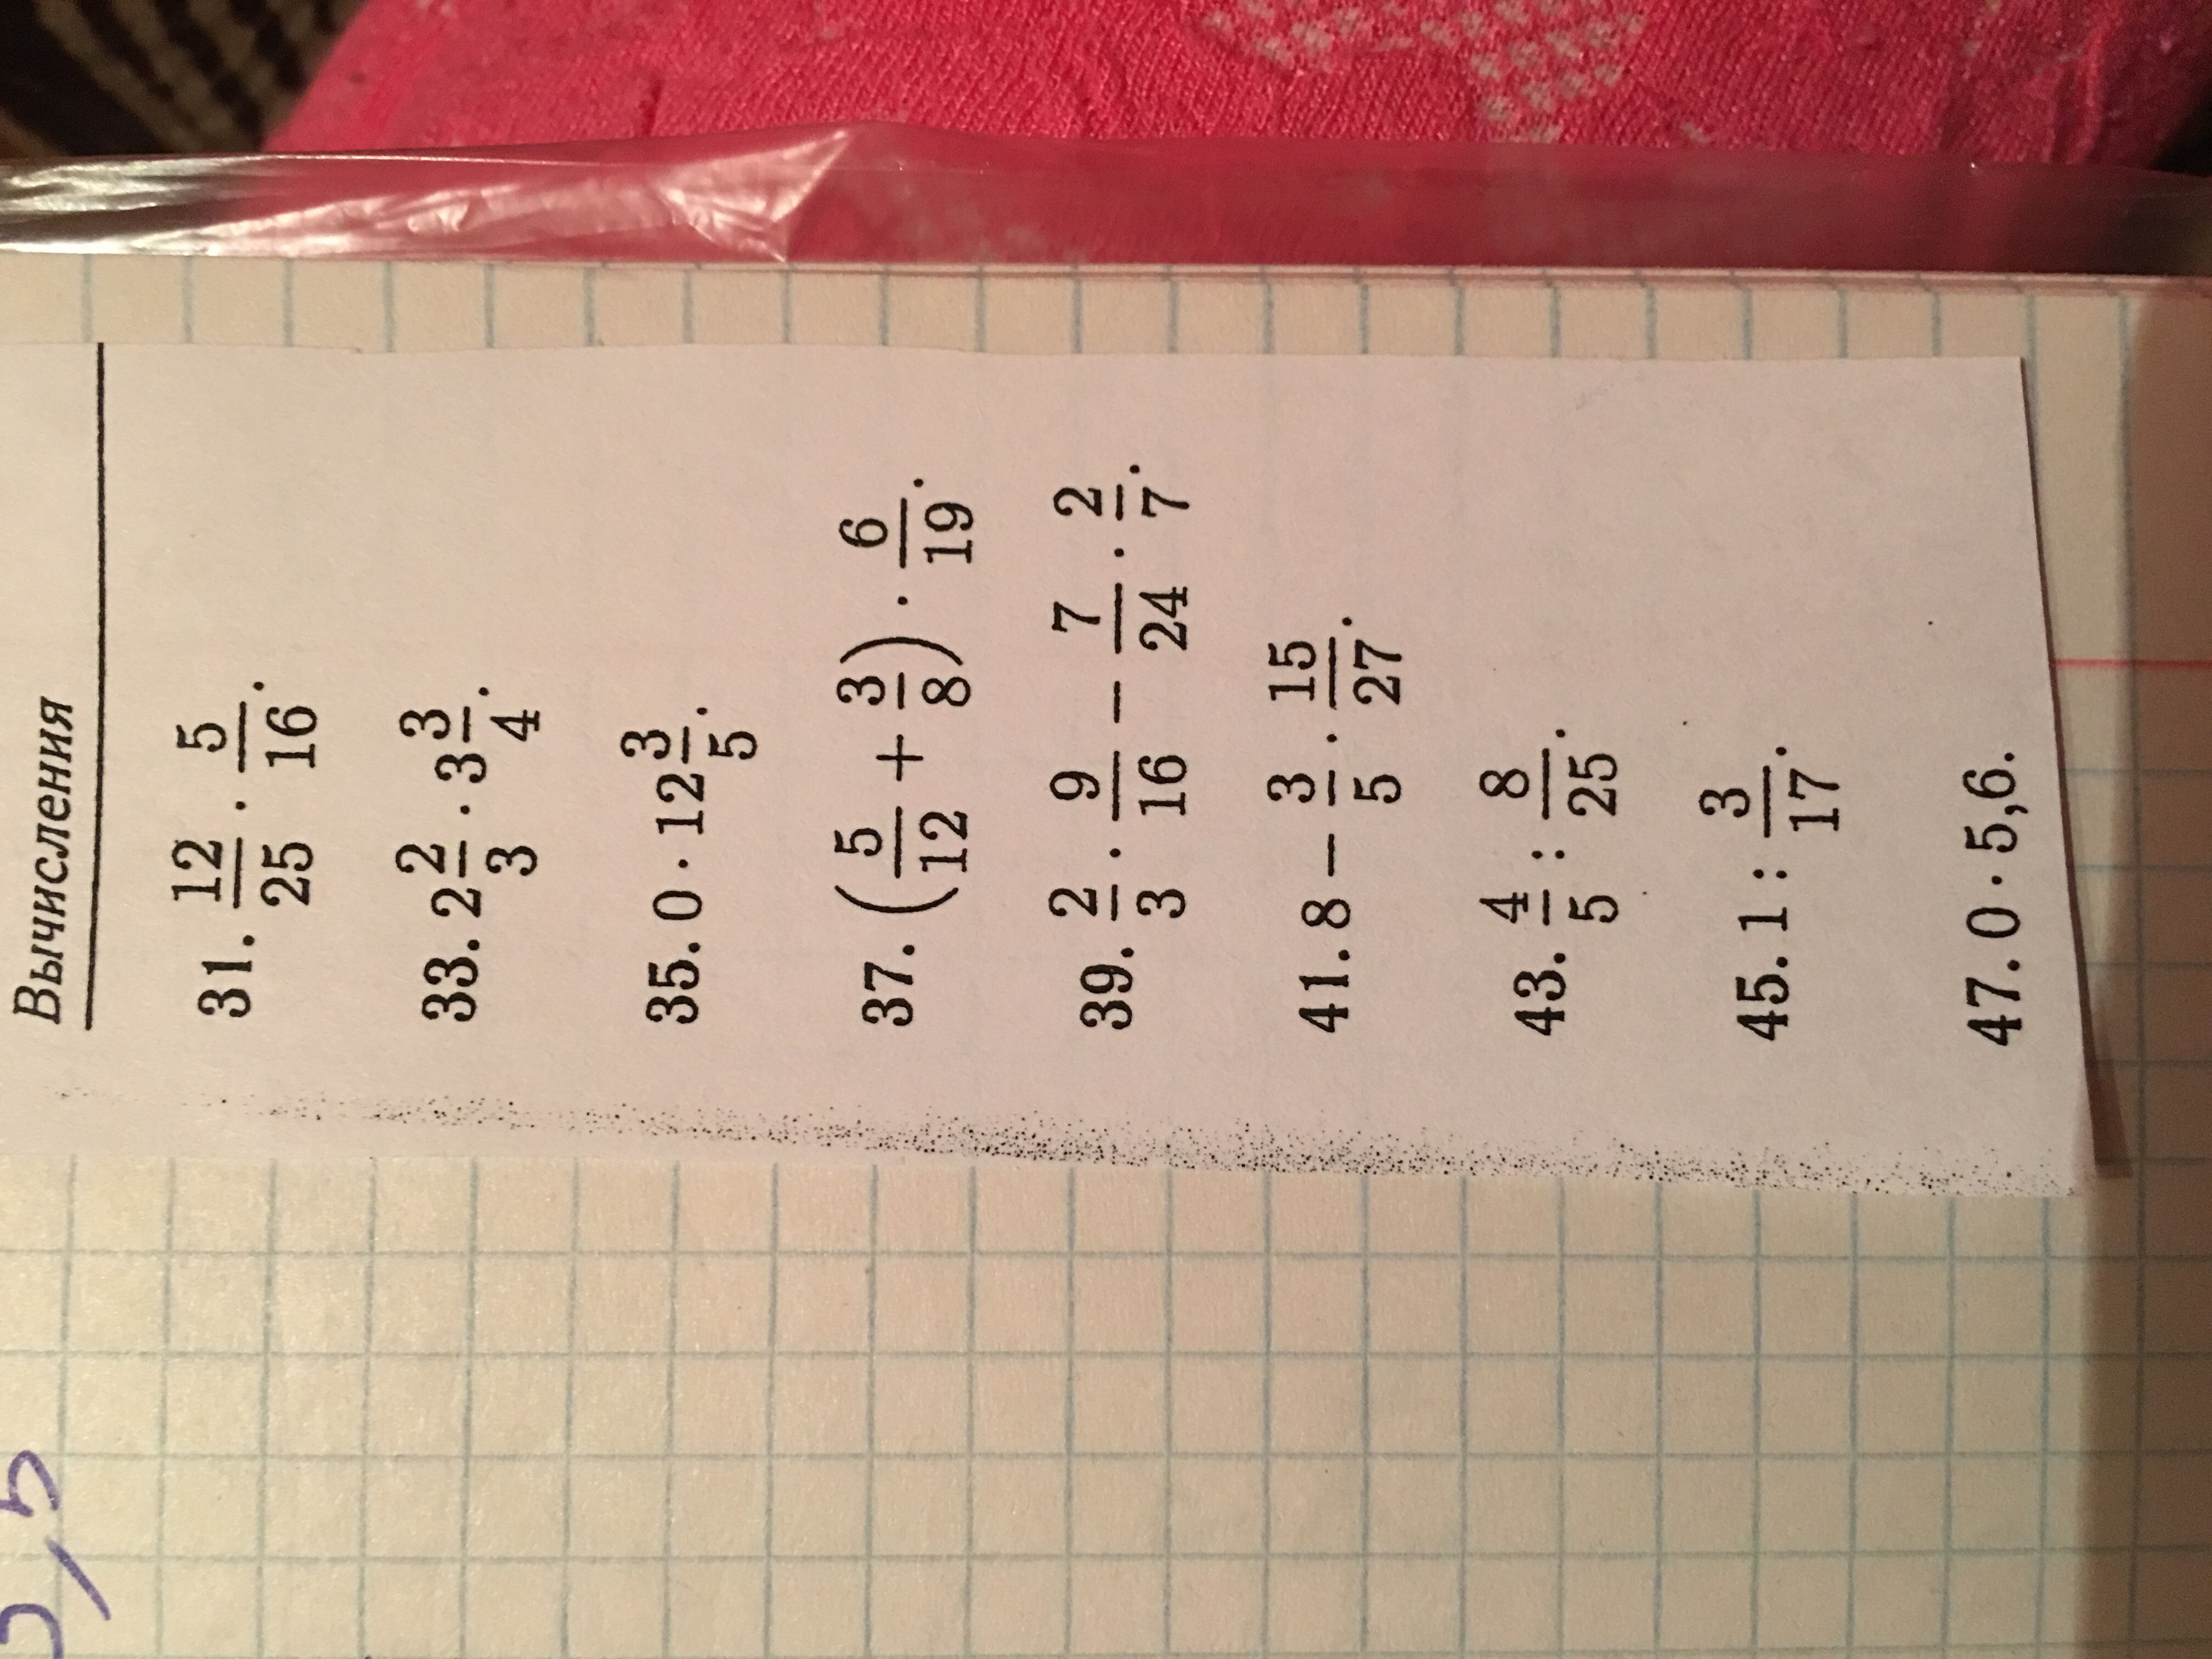 Вычисления
31. 12/25 · 5/16.
33. 2 2/3 · 3 3/4.
35. 0 · 12 3/5.
37. (5/12 + 3/8) · 6/19.
39. 2/3 · 9/16 − 7/24 · 2/7.
41. 8 − 3/5 · 15/27.
43. 4/5 : 8/25.
45. 1 : 3/17.
47. 0 · 5,6.